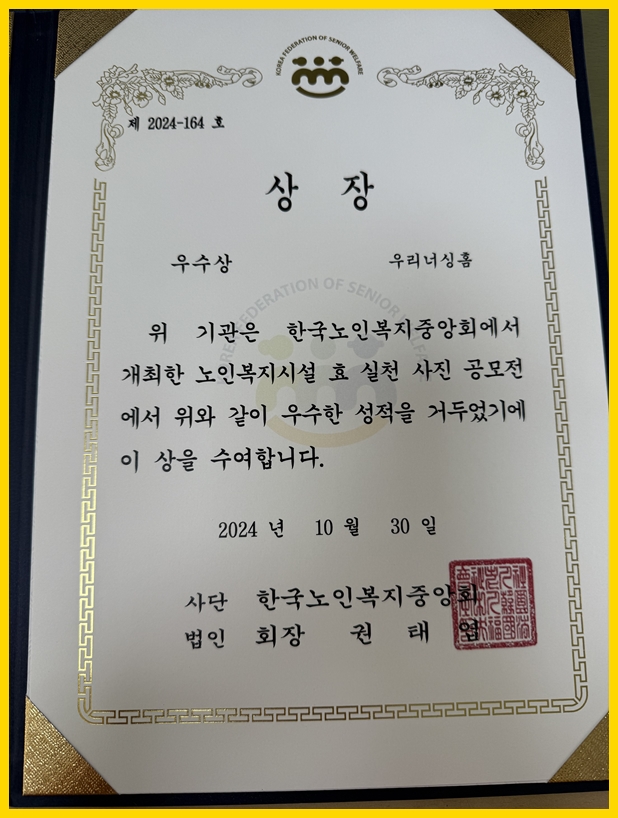 KOREA FEDERATION OF SENIOR WELFARE
제 2024-164 호
상 장
우수상 우리너싱홈
위 기관은 한국노인복지중앙회에서
개최한 노인복지시설 효 실천 사진 공모전
에서 위와 같이 우수한 성적을 거두었기에
이 상을 수여합니다.
2024 년 10 월 30 일
사단 한국노인복지중앙회
법인 회장 권 태 엽